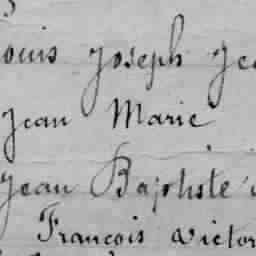 ouis Joseph Je
Jean Marie
Jean Baptiste
Francois Victor